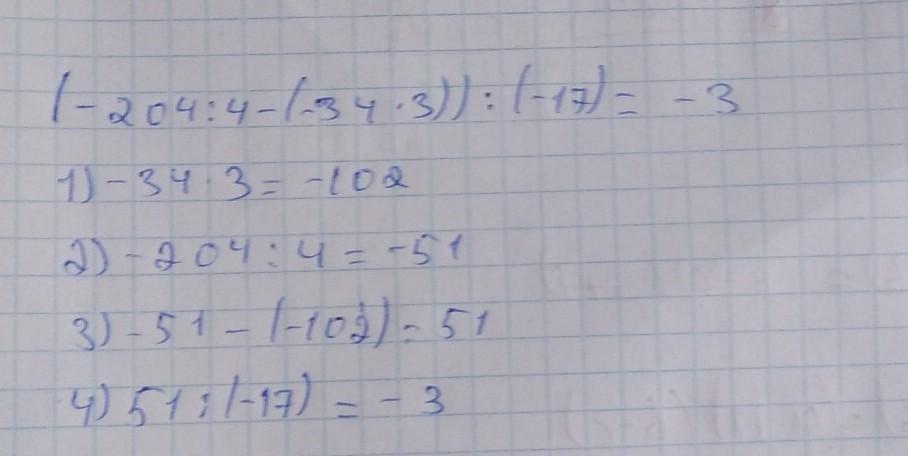 (-204:4-(-34·3)):(-17)= -3
1) -34·3= -102
2) -204:4=-51
3) -51-(-102)=51
4) 51:(-17)=-3